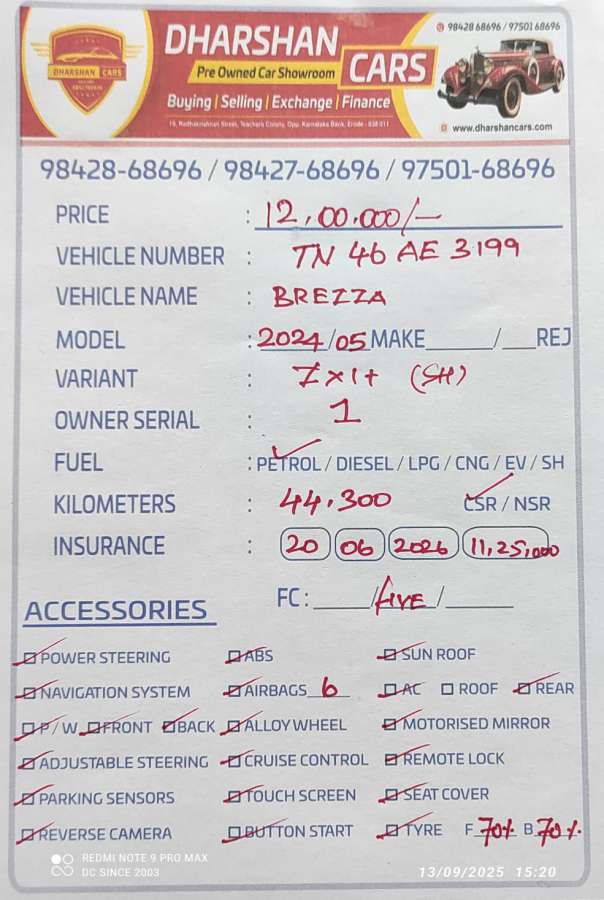 DHARSHAN CARS
DHARSHAN
CARS
Pre Owned Car Showroom
Buying | Selling | Exchange | Finance
19, Radhakrishnan Street, Teachers Colony, Opp. Karnataka Bank, Erode - 638 011
98428 68696 / 97501 68696
www.dharshancars.com
98428-68696 / 98427-68696 / 97501-68696
PRICE : 12,00.000/-
VEHICLE NUMBER : TN 46 AE 3199
VEHICLE NAME : BREZZA
MODEL : 2024/05 MAKE____/___REJ
VARIANT : ZXI+ (SH)
OWNER SERIAL : 1
FUEL : PETROL / DIESEL / LPG / CNG / EV / SH
KILOMETERS : 44.300 CSR / NSR
INSURANCE : 20 06 2026 11,25,000
FC : ____/LIVE/____
ACCESSORIES
POWER STEERING ABS SUN ROOF
NAVIGATION SYSTEM AIRBAGS 6 AC ROOF REAR
P / W FRONT BACK ALLOY WHEEL MOTORISED MIRROR
ADJUSTABLE STEERING CRUISE CONTROL REMOTE LOCK
PARKING SENSORS TOUCH SCREEN SEAT COVER
REVERSE CAMERA BUTTON START TYRE F 70% B 70%
REDMI NOTE 9 PRO MAX
DC SINCE 2003
13/09/2025 15:20